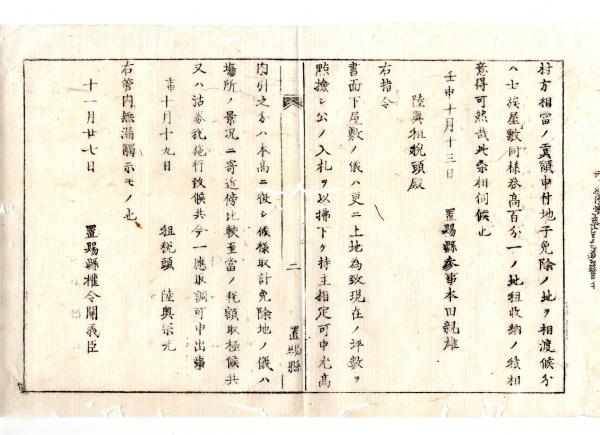 村方相當ノ貢額申付地子免除ノ地ヲ相渡候分
ハ士族屋敷同様券高百分一ノ地租收納ノ積相
意得可然哉此条相伺候也
壬申十月十三日 置賜縣参事本田親雄
陸奥租税頭殿
右指令
書面下屋敷ノ儀ハ更ニ上地為致現在ノ坪數ヲ
點撿シ公ノ入札ヲ以拂下ケ持主指定可申尤高
内引之分ハ本高ニ復シ候様取計免除地ノ儀ハ
場所ノ景况ニ寄近傍比較至當ノ税額取極候共
又ハ沽券税施行致候共今一應取調可申出事
壬申十月十九日 租税頭 陸奥宗光
右管内無漏觸示モノ也
十一月廿七日 置賜縣權令關義臣
二
置賜縣